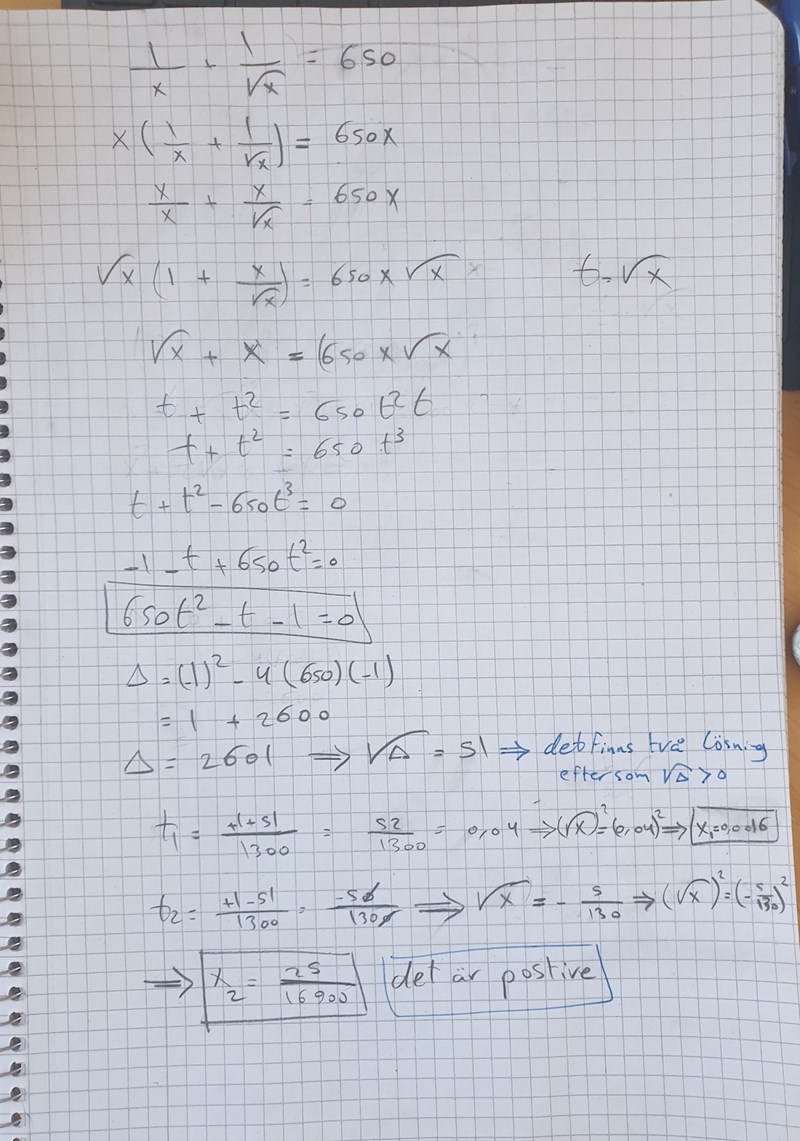 1/x + 1/√x = 650
x(1/x + 1/√x) = 650x
x/x + x/√x = 650x
√x (1 + x/√x) = 650x√x t=√x
√x + x = (650x√x
t + t² = 650 t² t
t + t² = 650 t³
t + t² - 650t³ = 0
-1 - t + 650t² = 0
650t² - t - 1 = 0
Δ = (-1)² - 4(650)(-1)
= 1 + 2600
Δ = 2601 ⇒ √Δ = 51 ⇒ det finns två lösning
eftersom √Δ > 0
t₁ = +1+51/1300 = 52/1300 = 0,04 ⇒ (√x)² = (0,04)² ⇒ x₁=0,0016
t₂ = +1-51/1300 = -50/1300 ⇒ √x = - 5/130 ⇒ (√x)² = (-5/130)²
⇒ x₂ = 25/16900 det är postive